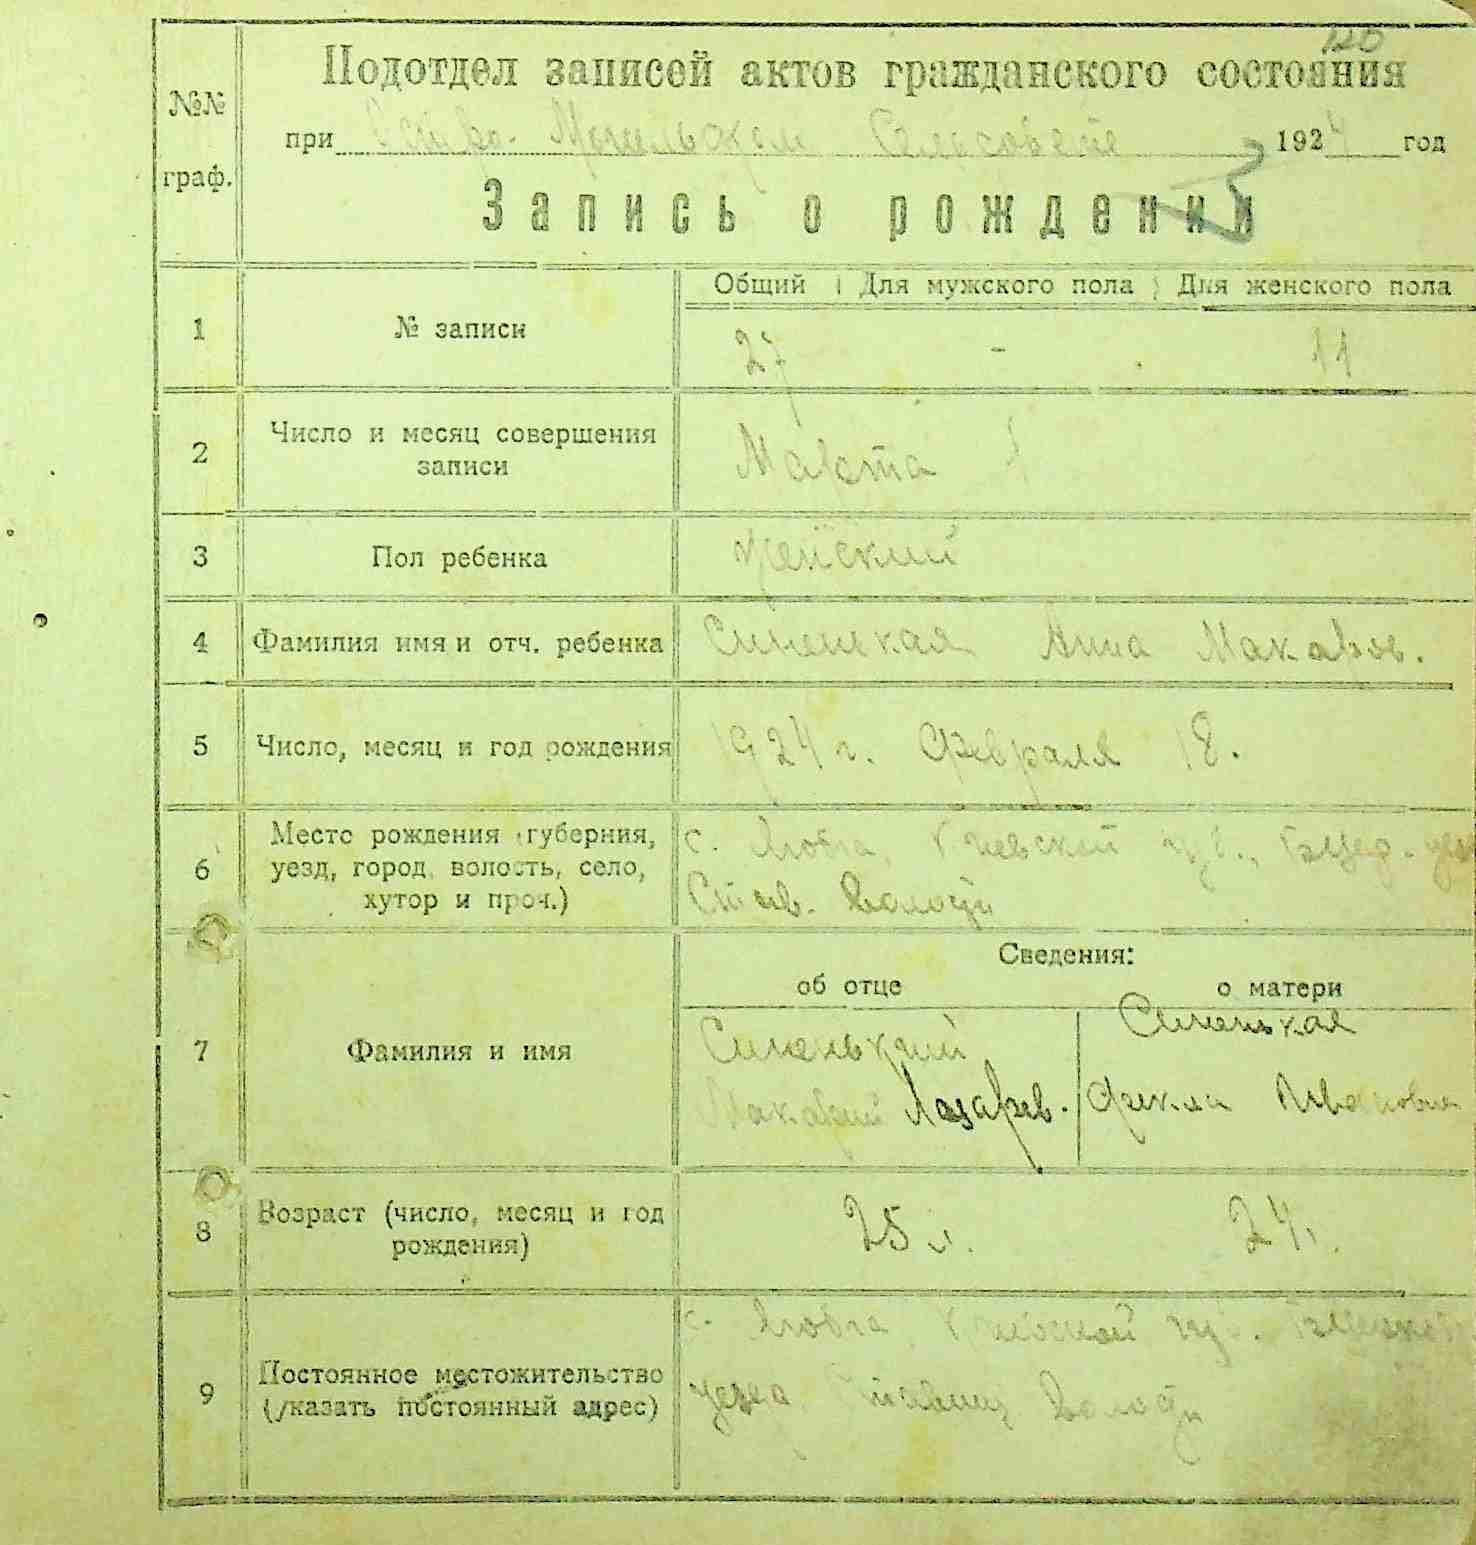 120
Подотдел записей актов гражданского состояния
№№ граф.
при Сельсовете 1924 год
Запись о рождении
Общий Для мужского пола Для женского пола
1 № записи 27 - 11
2 Число и месяц совершения записи Марта 1
3 Пол ребенка женский
4 Фамилия имя и отч. ребенка Синенькая Анна Макаров.
5 Число, месяц и год рождения 1924 г. Февраля 18.
6 Место рождения (губерния, уезд, город, волость, село, хутор и проч.) с. Киевской губ.,
Став. волости
Сведения:
об отце о матери
7 Фамилия и имя Синенький Синенькая
Макарий Лазарев. Фекла Ивановна
8 Возраст (число, месяц и год рождения) 25 л. 24 л.
9 Постоянное местожительство (указать постоянный адрес) с. Киевской губ.
уезда волости